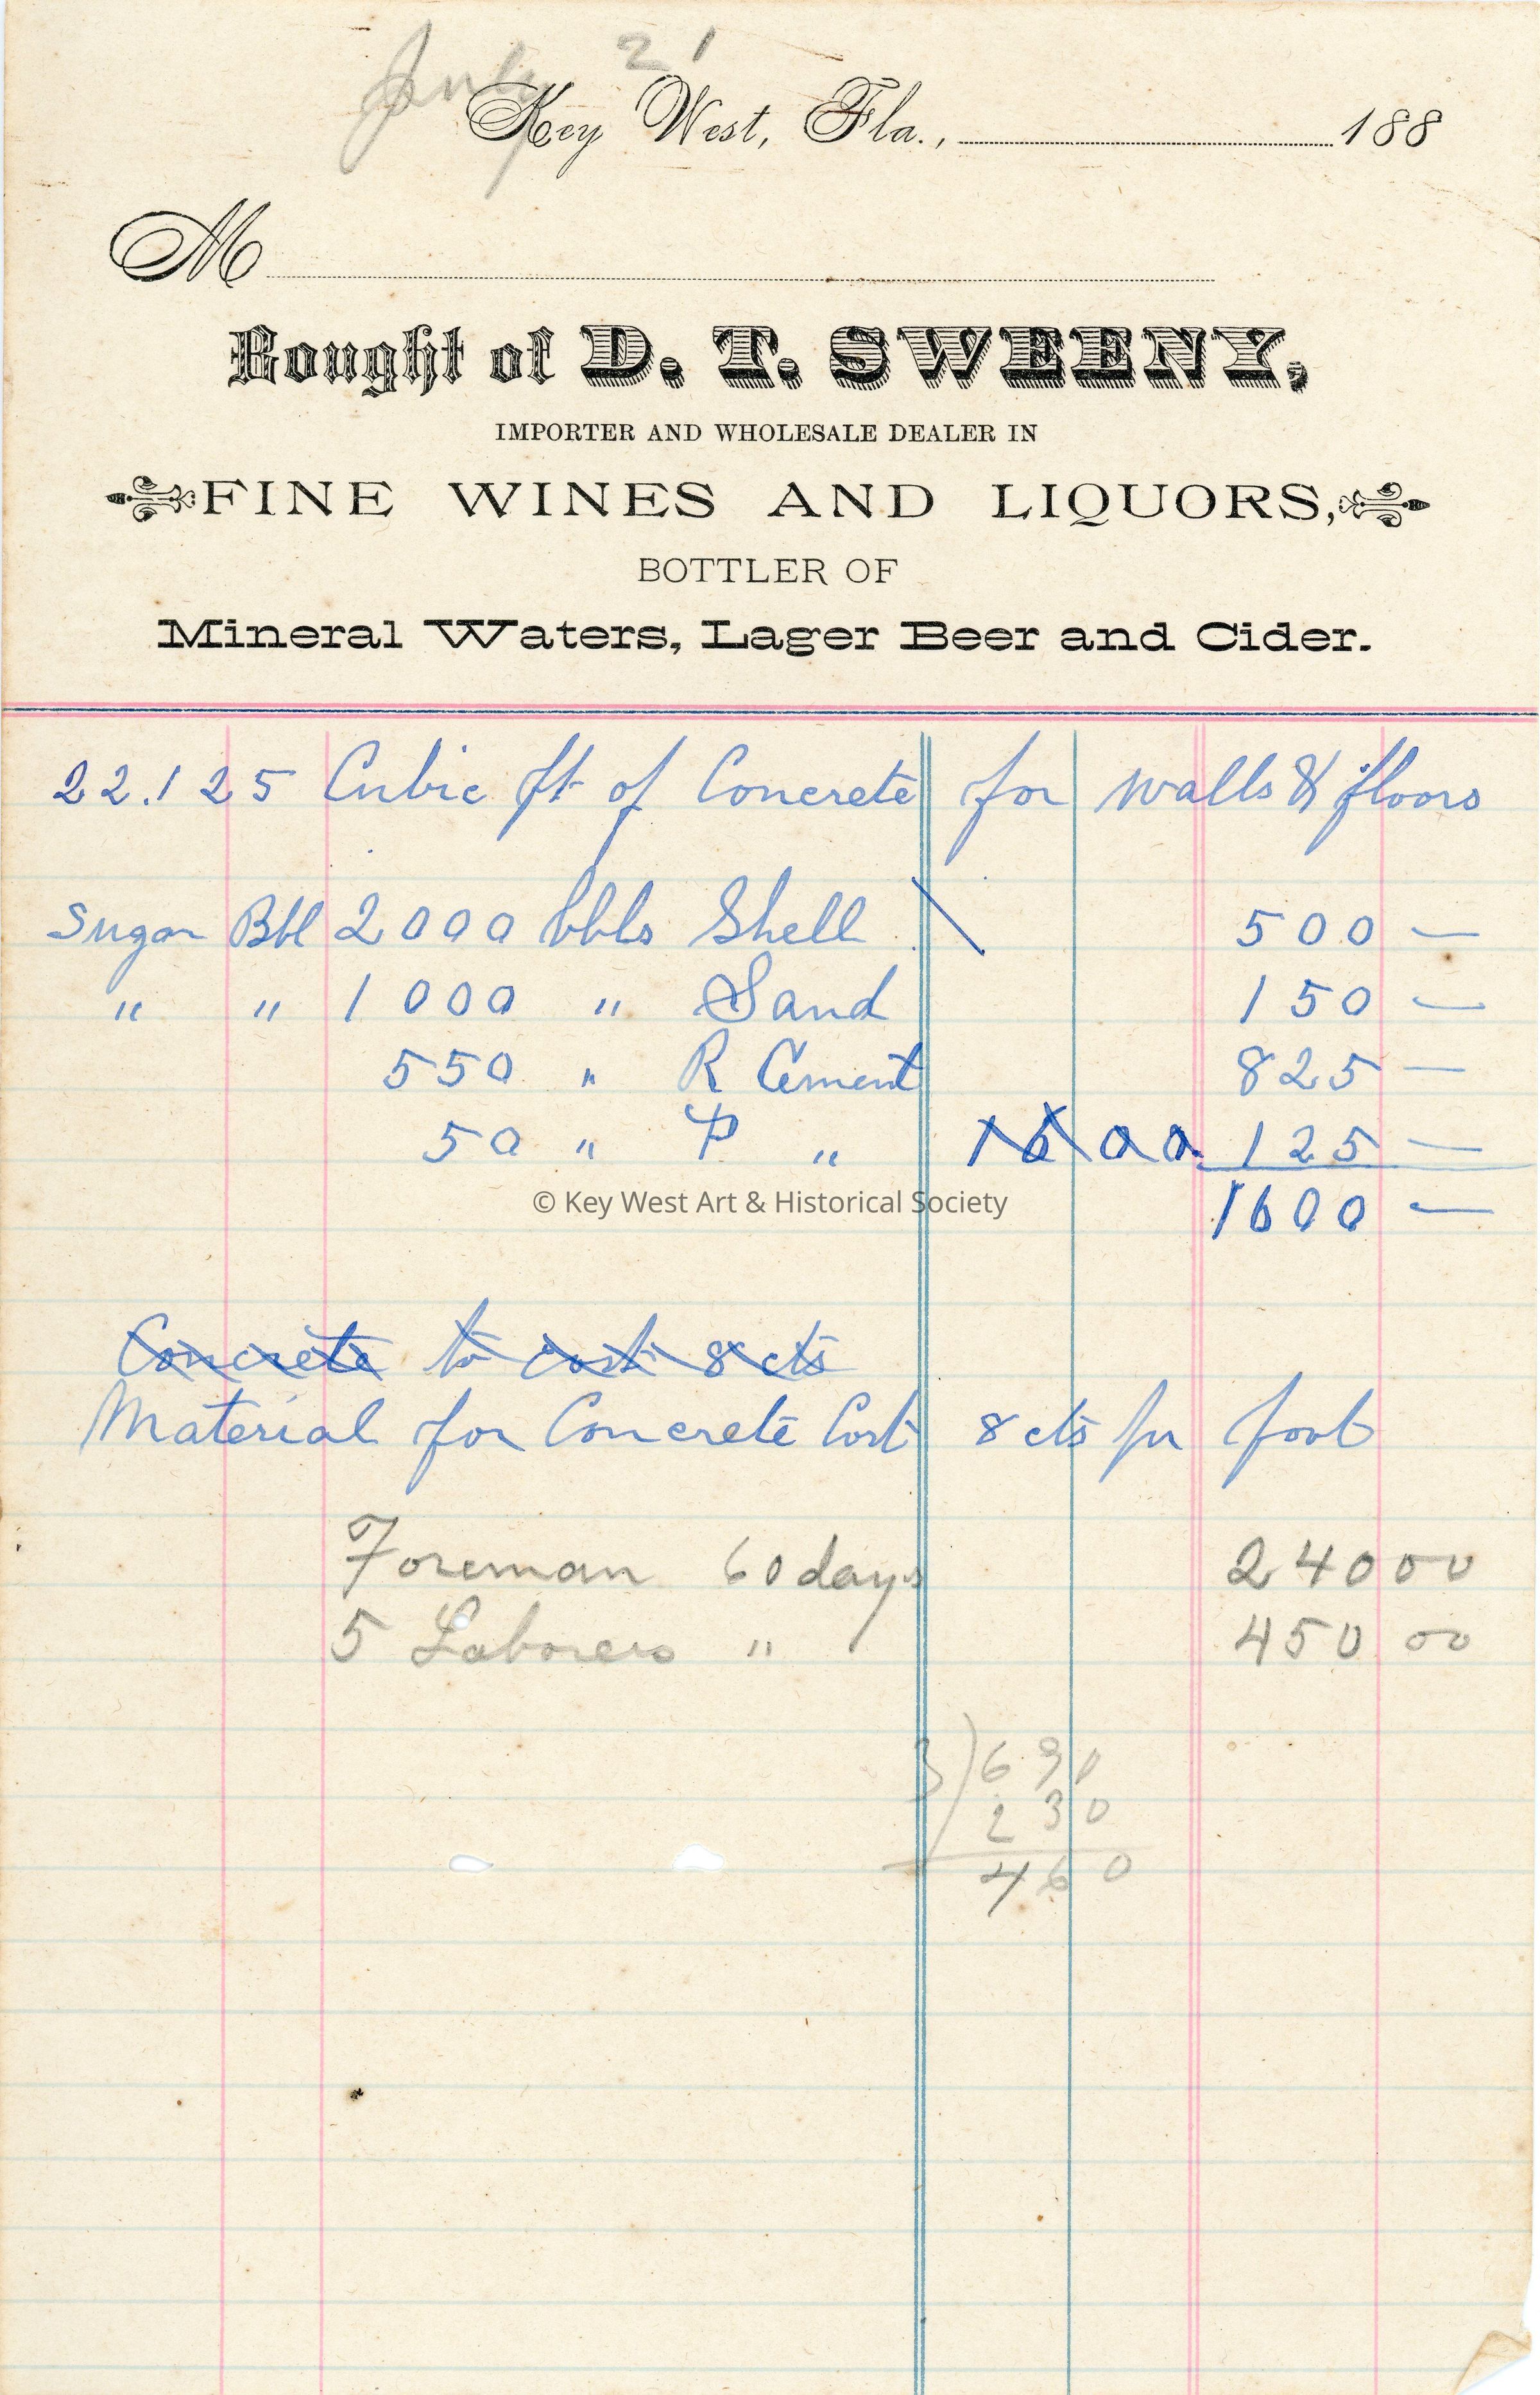 July 21
Key West, Fla., 188
M
Bought of D. T. SWEENY,
IMPORTER AND WHOLESALE DEALER IN
FINE WINES AND LIQUORS,
BOTTLER OF
Mineral Waters, Lager Beer and Cider.
22.125 Cubic ft of Concrete for walls & floors
Sugar Bbl 2000 bbls Shell 500 —
" " 1000 " Sand 150 —
550 " R Cement 825 —
50 " P " 1600 125 —
© Key West Art & Historical Society
1600 —
Concrete to cost 8 cts
Material for Concrete Cost 8 cts per foot
Foreman 60 days 240 00
5 Laborers " 450 00
3) 690
230
460